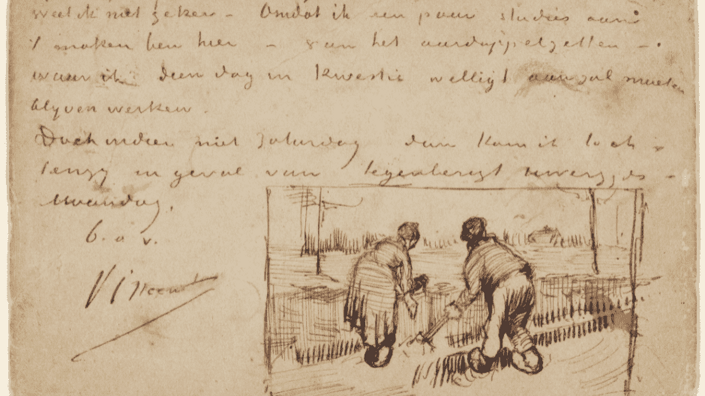 niet zeker - Omdat ik een paar studies aan
't maken ben hier - van het aardappelzetten -
waar ik dien dag in kwestie welligt aan zal moeten
blyven werken.
Doch indien niet Saturdag dan kom ik toch -
tenzy in geval van tegenberigt Uwerzyds -
Maandag.
b. a v.
Vincent